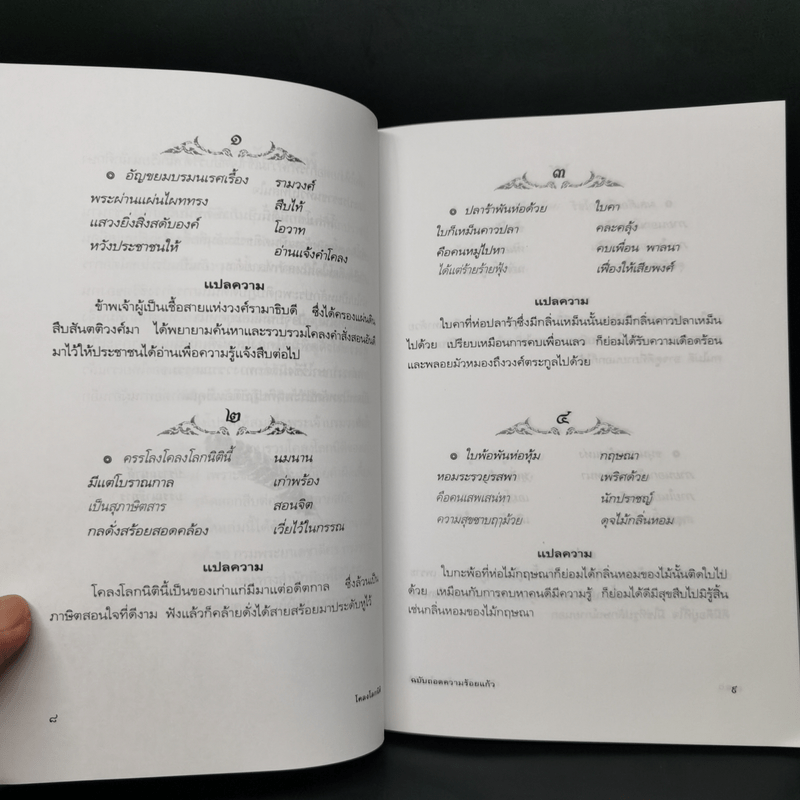 ๑
๏ อัญขยมบรมนเรศเรื้อง รามวงศ์
พระผ่านแผ่นไผททรง สืบไท้
แสวงยิ่งสิ่งสดับองค์ โอวาท
หวังประชาชนให้ อ่านแจ้งคำโคลง
แปลความ
ข้าพเจ้าผู้เป็นเชื้อสายแห่งวงศ์รามาธิบดี ซึ่งได้ครองแผ่นดิน
สืบสันตติวงศ์มา ได้พยายามค้นหาและรวบรวมโคลงคำสั่งสอนอันดี
มาไว้ให้ประชาชนได้อ่านเพื่อความรู้แจ้งสืบต่อไป
๒
๏ ครรโลงโคลงโลกนิตินี้ นมนาน
มีแต่โบราณกาล เก่าพร้อง
เป็นสุภาษิตสาร สอนจิต
กลดั่งสร้อยสอดคล้อง เวี่ยไว้ในกรรณ
แปลความ
โคลงโลกนิตินี้เป็นของเก่าแก่มีมาแต่อดีตกาล ซึ่งล้วนเป็น
ภาษิตสอนใจที่ดีงาม ฟังแล้วก็คล้ายดั่งได้สายสร้อยมาประดับหูไว้
โคลงโลกนิติ
๘
๓
๏ ปลาร้าพันห่อด้วย ใบคา
ใบก็เหม็นคาวปลา คละคลุ้ง
คือคนหมู่ไปหา คบเพื่อน พาลนา
ได้แต่ร้ายร้ายฟุ้ง เฟื่องให้เสียพงศ์
แปลความ
ใบคาที่ห่อปลาร้าซึ่งมีกลิ่นเหม็นนั้นย่อมมีกลิ่นคาวปลาเหม็น
ไปด้วย เปรียบเหมือนการคบเพื่อนเลว ก็ย่อมได้รับความเดือดร้อน
และพลอยมัวหมองถึงวงศ์ตระกูลไปด้วย
๔
๏ ใบพ้อพันห่อหุ้ม กฤษณา
หอมระรวยรสพา เพริศด้วย
คือคนเสพเสน่หา นักปราชญ์
ความสุขซาบฤาม้วย ดุจไม้กลิ่นหอม
แปลความ
ใบกะพ้อที่ห่อไม้กฤษณาก็ย่อมได้กลิ่นหอมของไม้นั้นติดใบไป
ด้วย เหมือนกับการคบหาคนดีมีความรู้ ก็ย่อมได้ดีมีสุขสืบไปมิรู้สิ้น
เช่นกลิ่นหอมของไม้กฤษณา
ฉบับถอดความร้อยแก้ว
๙